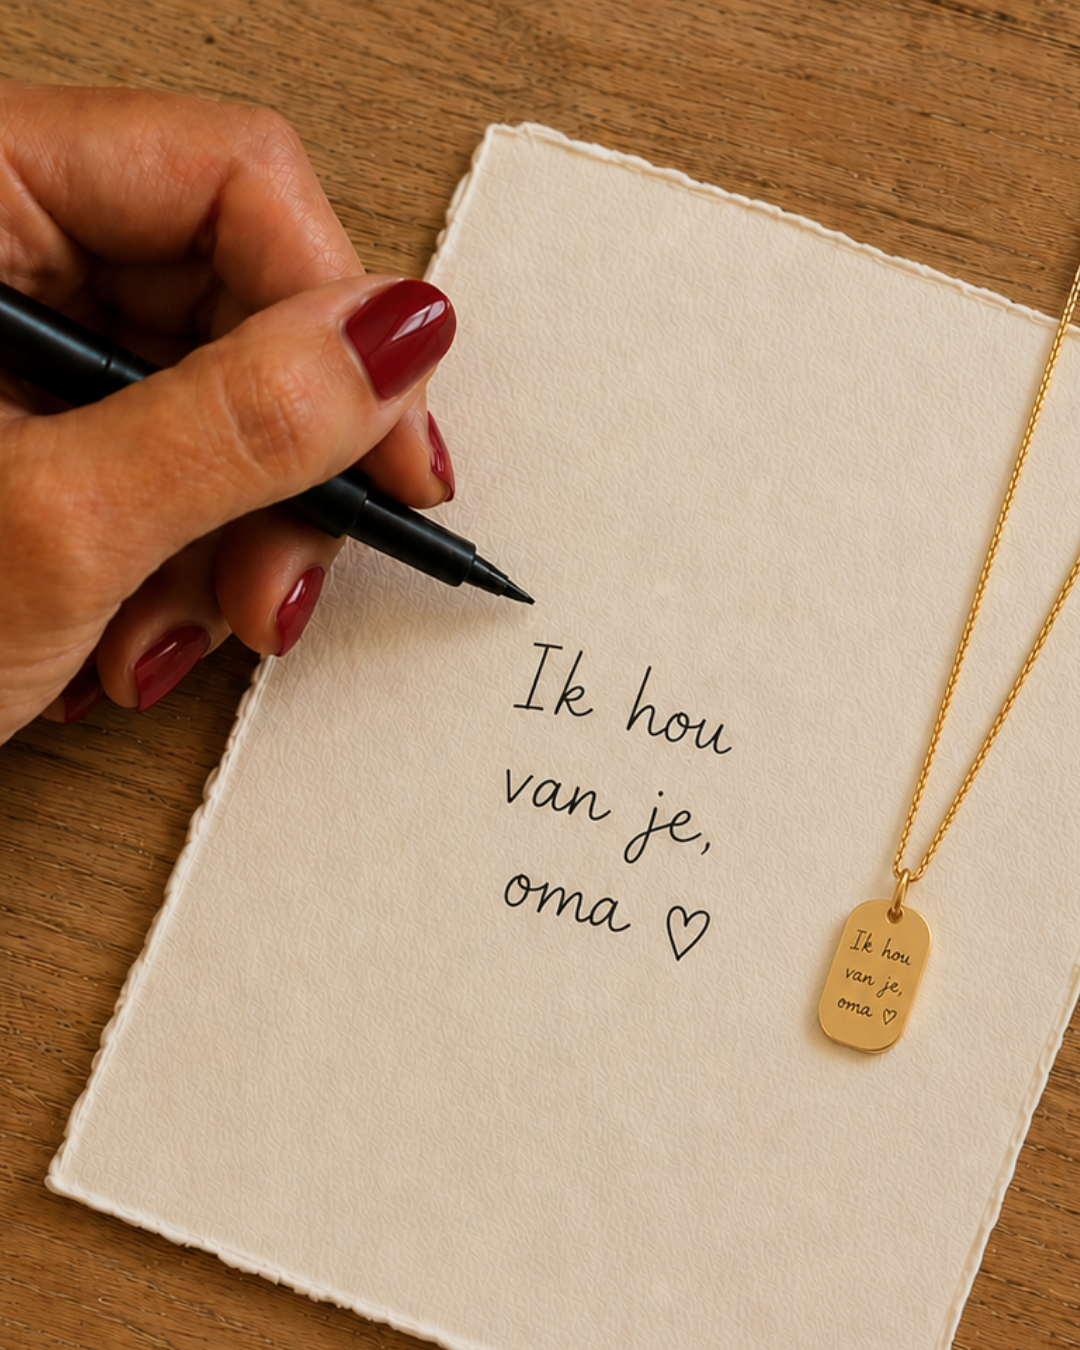 Ik hou
van je,
oma ♡
Ik hou
van je,
oma ♡